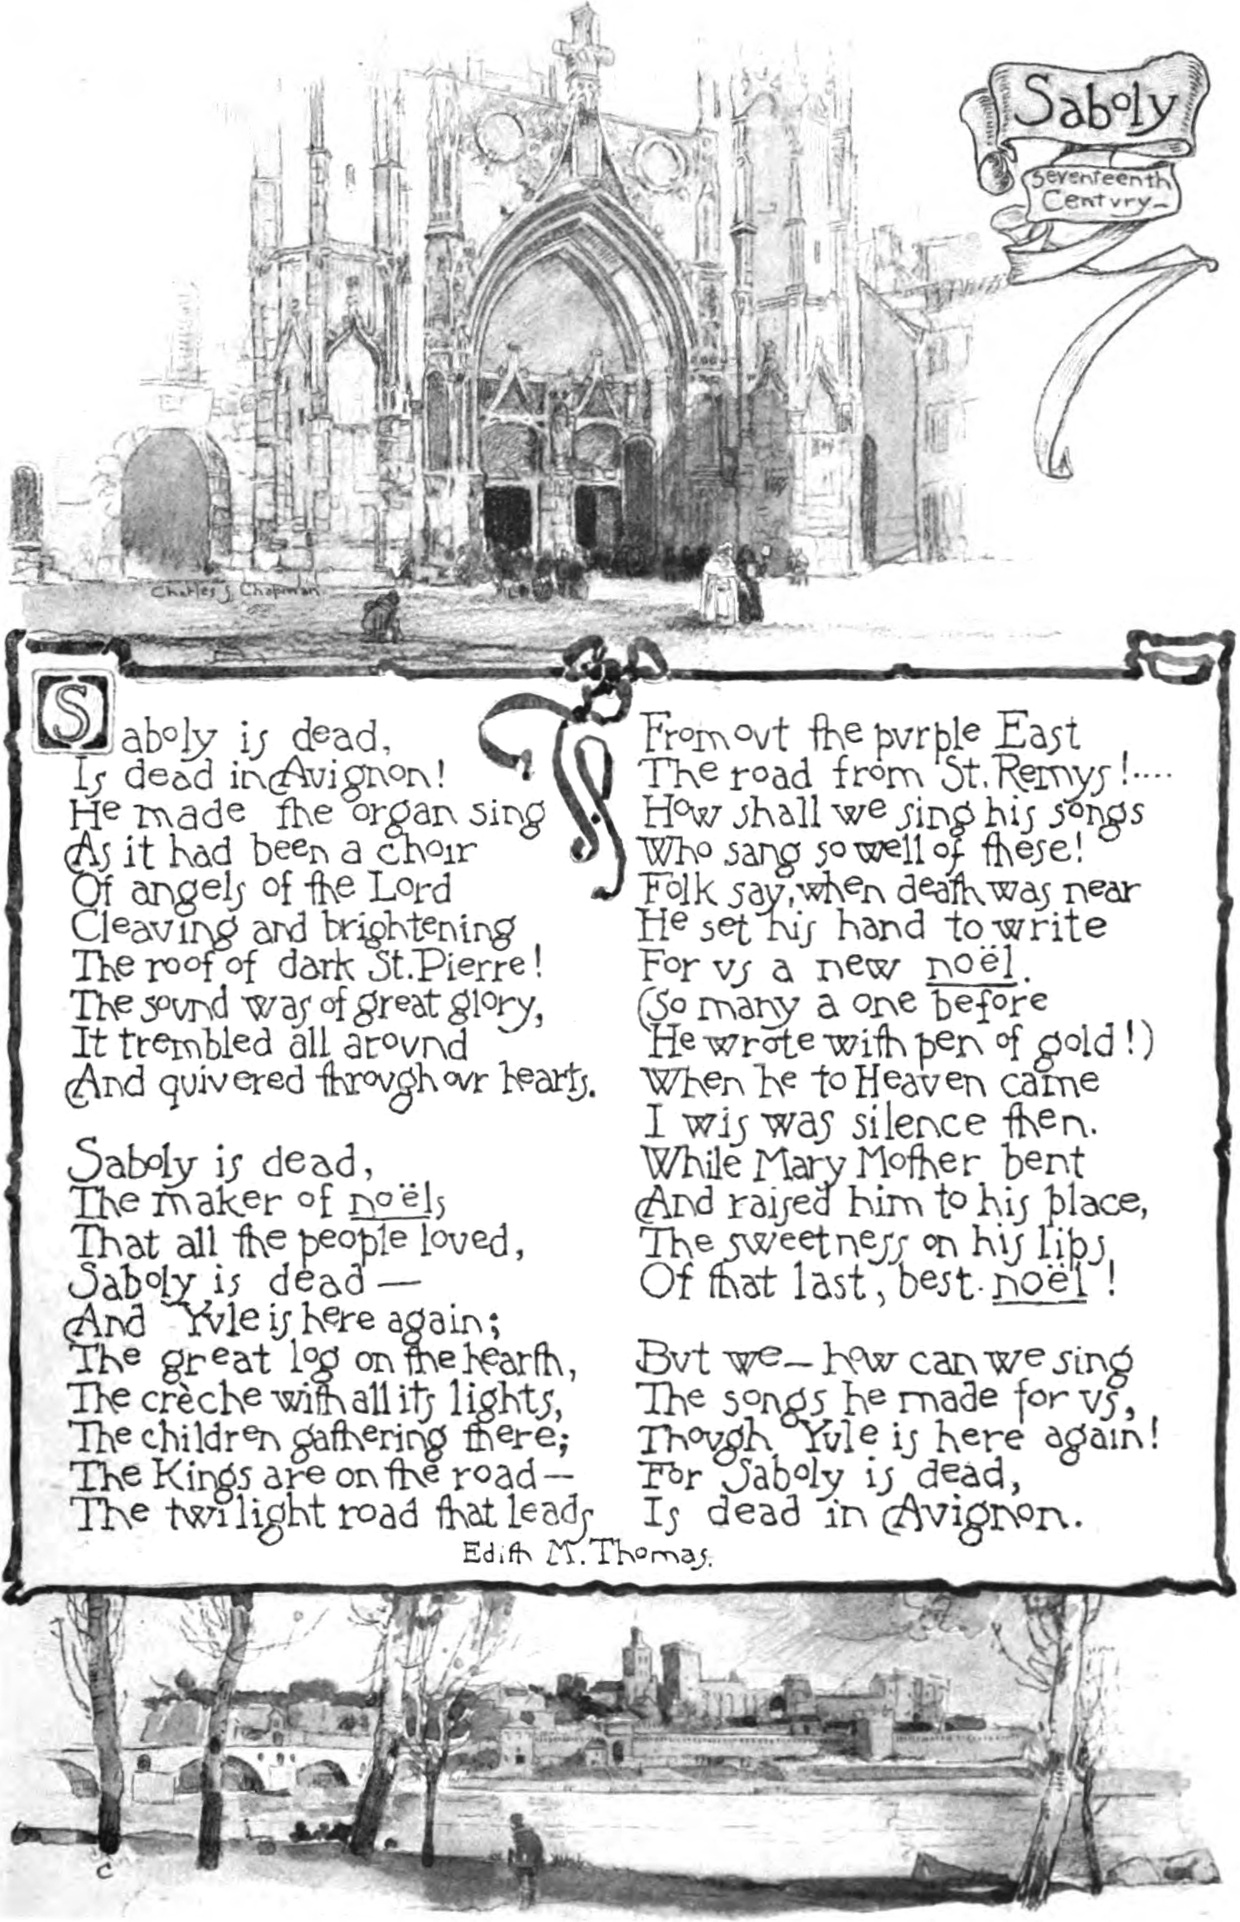 Saboly
Seventeenth
Century
Charles S. Chapman
Saboly is dead,
Is dead in Avignon!
He made the organ sing
As it had been a choir
Of angels of the Lord
Cleaving and brightening
The roof of dark St. Pierre!
The sound was of great glory,
It trembled all around
And quivered through our hearts.
Saboly is dead,
The maker of noëls
That all the people loved,
Saboly is dead —
And Yule is here again;
The great log on the hearth,
The crèche with all its lights,
The children gathering there;
The Kings are on the road —
The twilight road that leads
From out the purple East
The road from St. Remys!....
How shall we sing his songs
Who sang so well of these!
Folk say, when death was near
He set his hand to write
For us a new noël.
(So many a one before
He wrote with pen of gold!)
When he to Heaven came
I wis was silence then.
While Mary Mother bent
And raised him to his place,
The sweetness on his lips
Of that last, best noël!
But we — how can we sing
The songs he made for us,
Though Yule is here again!
For Saboly is dead,
Is dead in Avignon.
Edith M. Thomas.
C